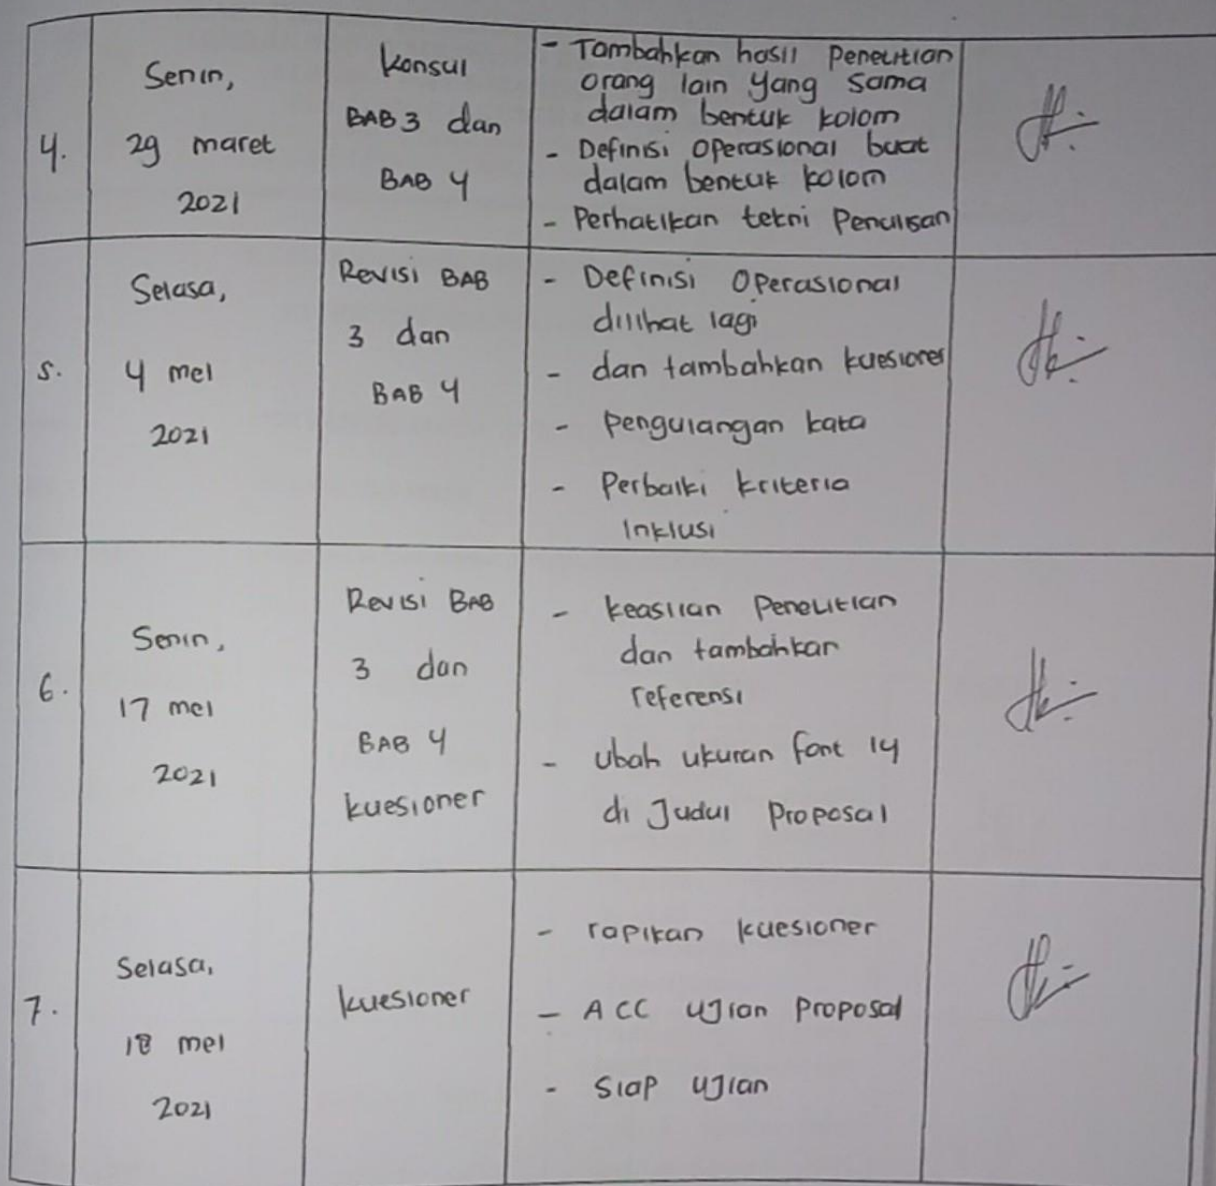 4.
Senin,
29 maret
2021
Konsul
BAB 3 dan
BAB 4
- Tambahkan hasil Penelitian
orang lain yang sama
dalam bentuk kolom
- Definisi Operasional buat
dalam bentuk kolom
- Perhatikan tekni Penulisan
5.
Selasa,
4 mei
2021
Revisi BAB
3 dan
BAB 4
- Definisi Operasional
dilihat lagi
- dan tambahkan kuesioner
- Pengulangan kata
- Perbaiki kriteria
Inklusi
6.
Senin,
17 mei
2021
Revisi BAB
3 dan
BAB 4
kuesioner
- keaslian Penelitian
dan tambahkan
referensi
- ubah ukuran font 14
di Judul Proposal
7.
Selasa,
18 mei
2021
kuesioner
- rapikan kuesioner
- ACC UJian Proposal
- Siap UJian